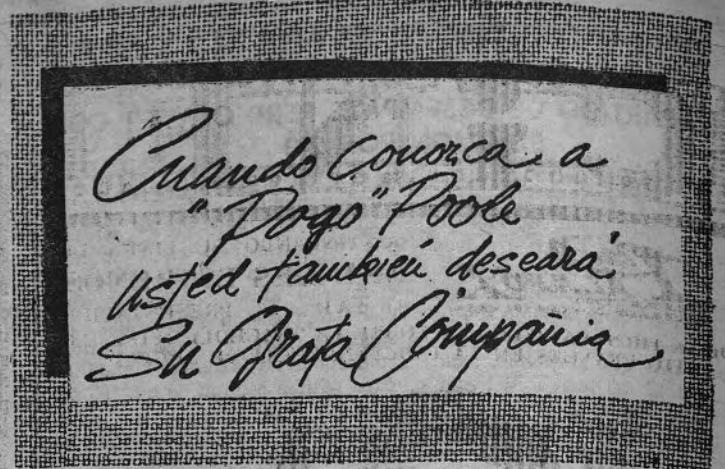 Cuando conozca a
"Pogo" Poole
usted también deseará
Su Grata Compañia